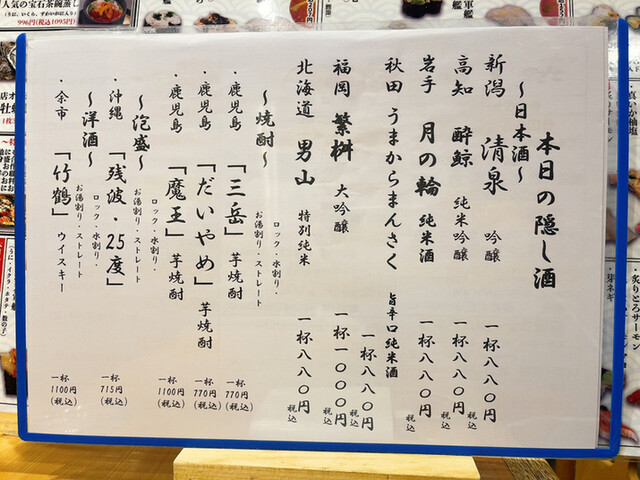 本日の隠し酒
～日本酒～
新潟 清泉 吟醸 一杯八八〇円 税込
高知 酔鯨 純米吟醸 一杯八八〇円 税込
岩手 月の輪 純米酒 一杯八八〇円 税込
秋田 うまからまんさく 旨辛口純米酒 一杯八八〇円 税込
福岡 繁桝 大吟醸 一杯一〇〇〇円 税込
北海道 男山 特別純米 一杯八八〇円 税込
～焼酎～ ロック・水割り・
お湯割り・ストレート
・鹿児島 「三岳」 芋焼酎 一杯 770円 (税込)
・鹿児島 「だいやめ」 芋焼酎 一杯 770円 (税込)
・鹿児島 「魔王」 芋焼酎 一杯 1100円 (税込)
～泡盛～ ロック・水割り・
お湯割り・ストレート
・沖縄 「残波・25度」 一杯 715円 (税込)
～洋酒～ ロック・水割り・
お湯割り・ストレート
・余市 「竹鶴」 ウイスキー 一杯 1100円 (税込)
人気の宝石茶碗蒸し
996円(税込1095円)
(うに・イクラ・ホタテ・数の子)
炙りとろサーモン
・芽ネギ